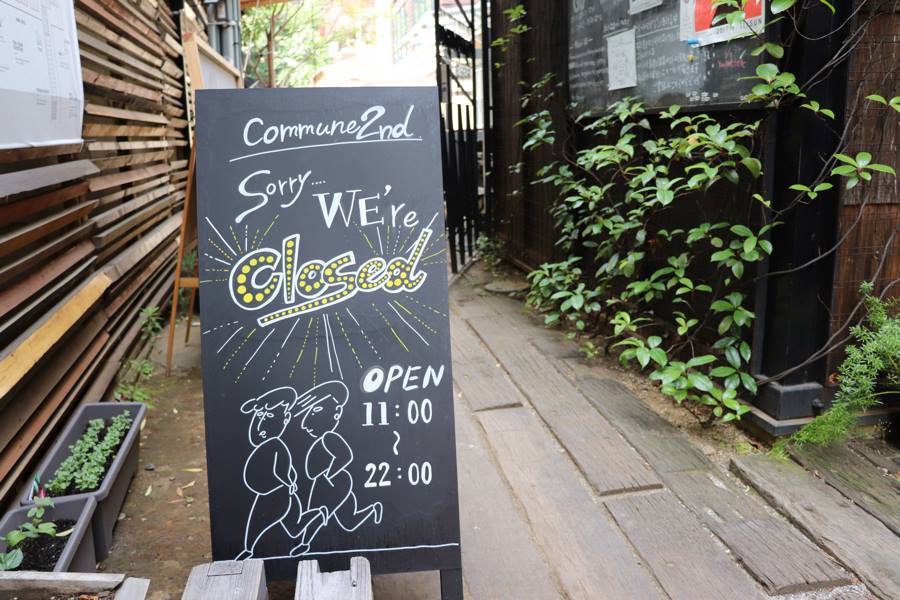 Commune2nd
Sorry....
WE're
Closed
OPEN
11:00
~
22:00